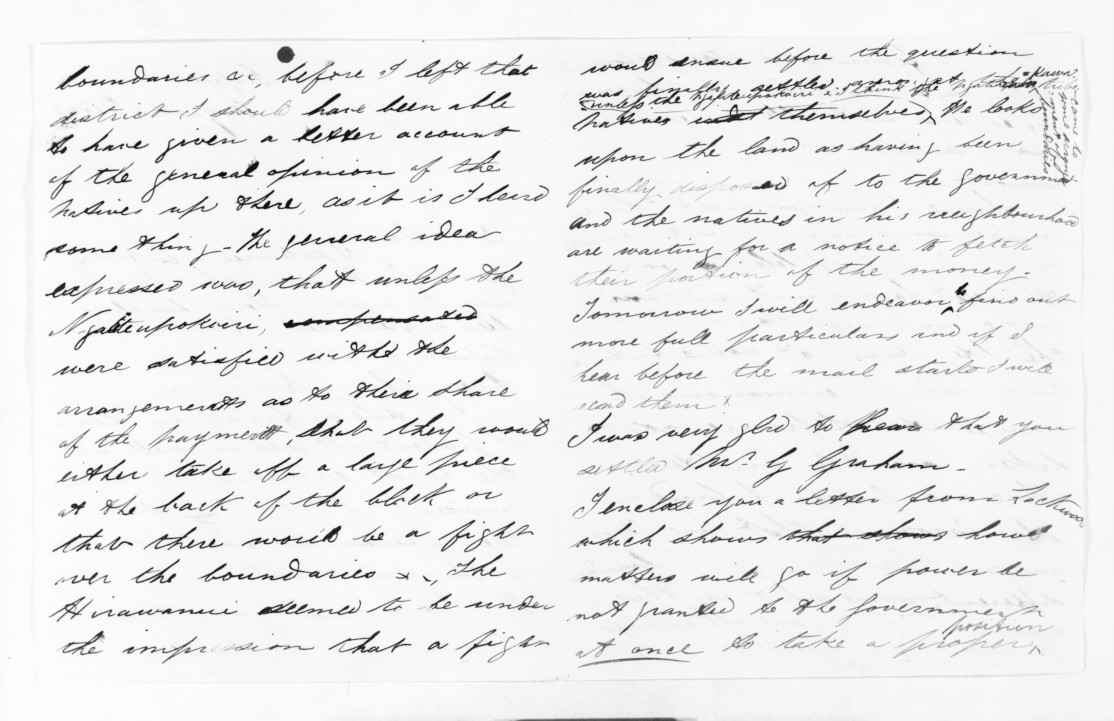 boundaries &c, before I left that
district I should have been able
to have given a better account
of the general opinion of the
natives up there, as it is I heard
something - The general idea
expressed was, that unless the
Ngateupokoiri, compensated
were satisfied with the
arrangements as to their share
of the payment, that they would
either take off a large piece
at the back of the block or
that there would be a fight
over the boundaries &c., The
Hirawanui seemed to be under
the impression that a fight
would ensue before the question
was finally settled,
unless the Ngateupokoiri &
came to
some
natives themselves, He looks
upon the land as having been
finally disposed of to the Governmt
and the natives in his neighbourhood
are waiting for a notice to fetch
their portion of the money.
Tomorrow I will endeavor to find out
more full particulars and if I
hear before the mail starts I will
send them
I was very glad to hear that you
settled Mr. G Graham -
I enclose you a letter from Lockwood
which shows that shows how
matters will go if power be
not granted to the Government
at once to take a proper position